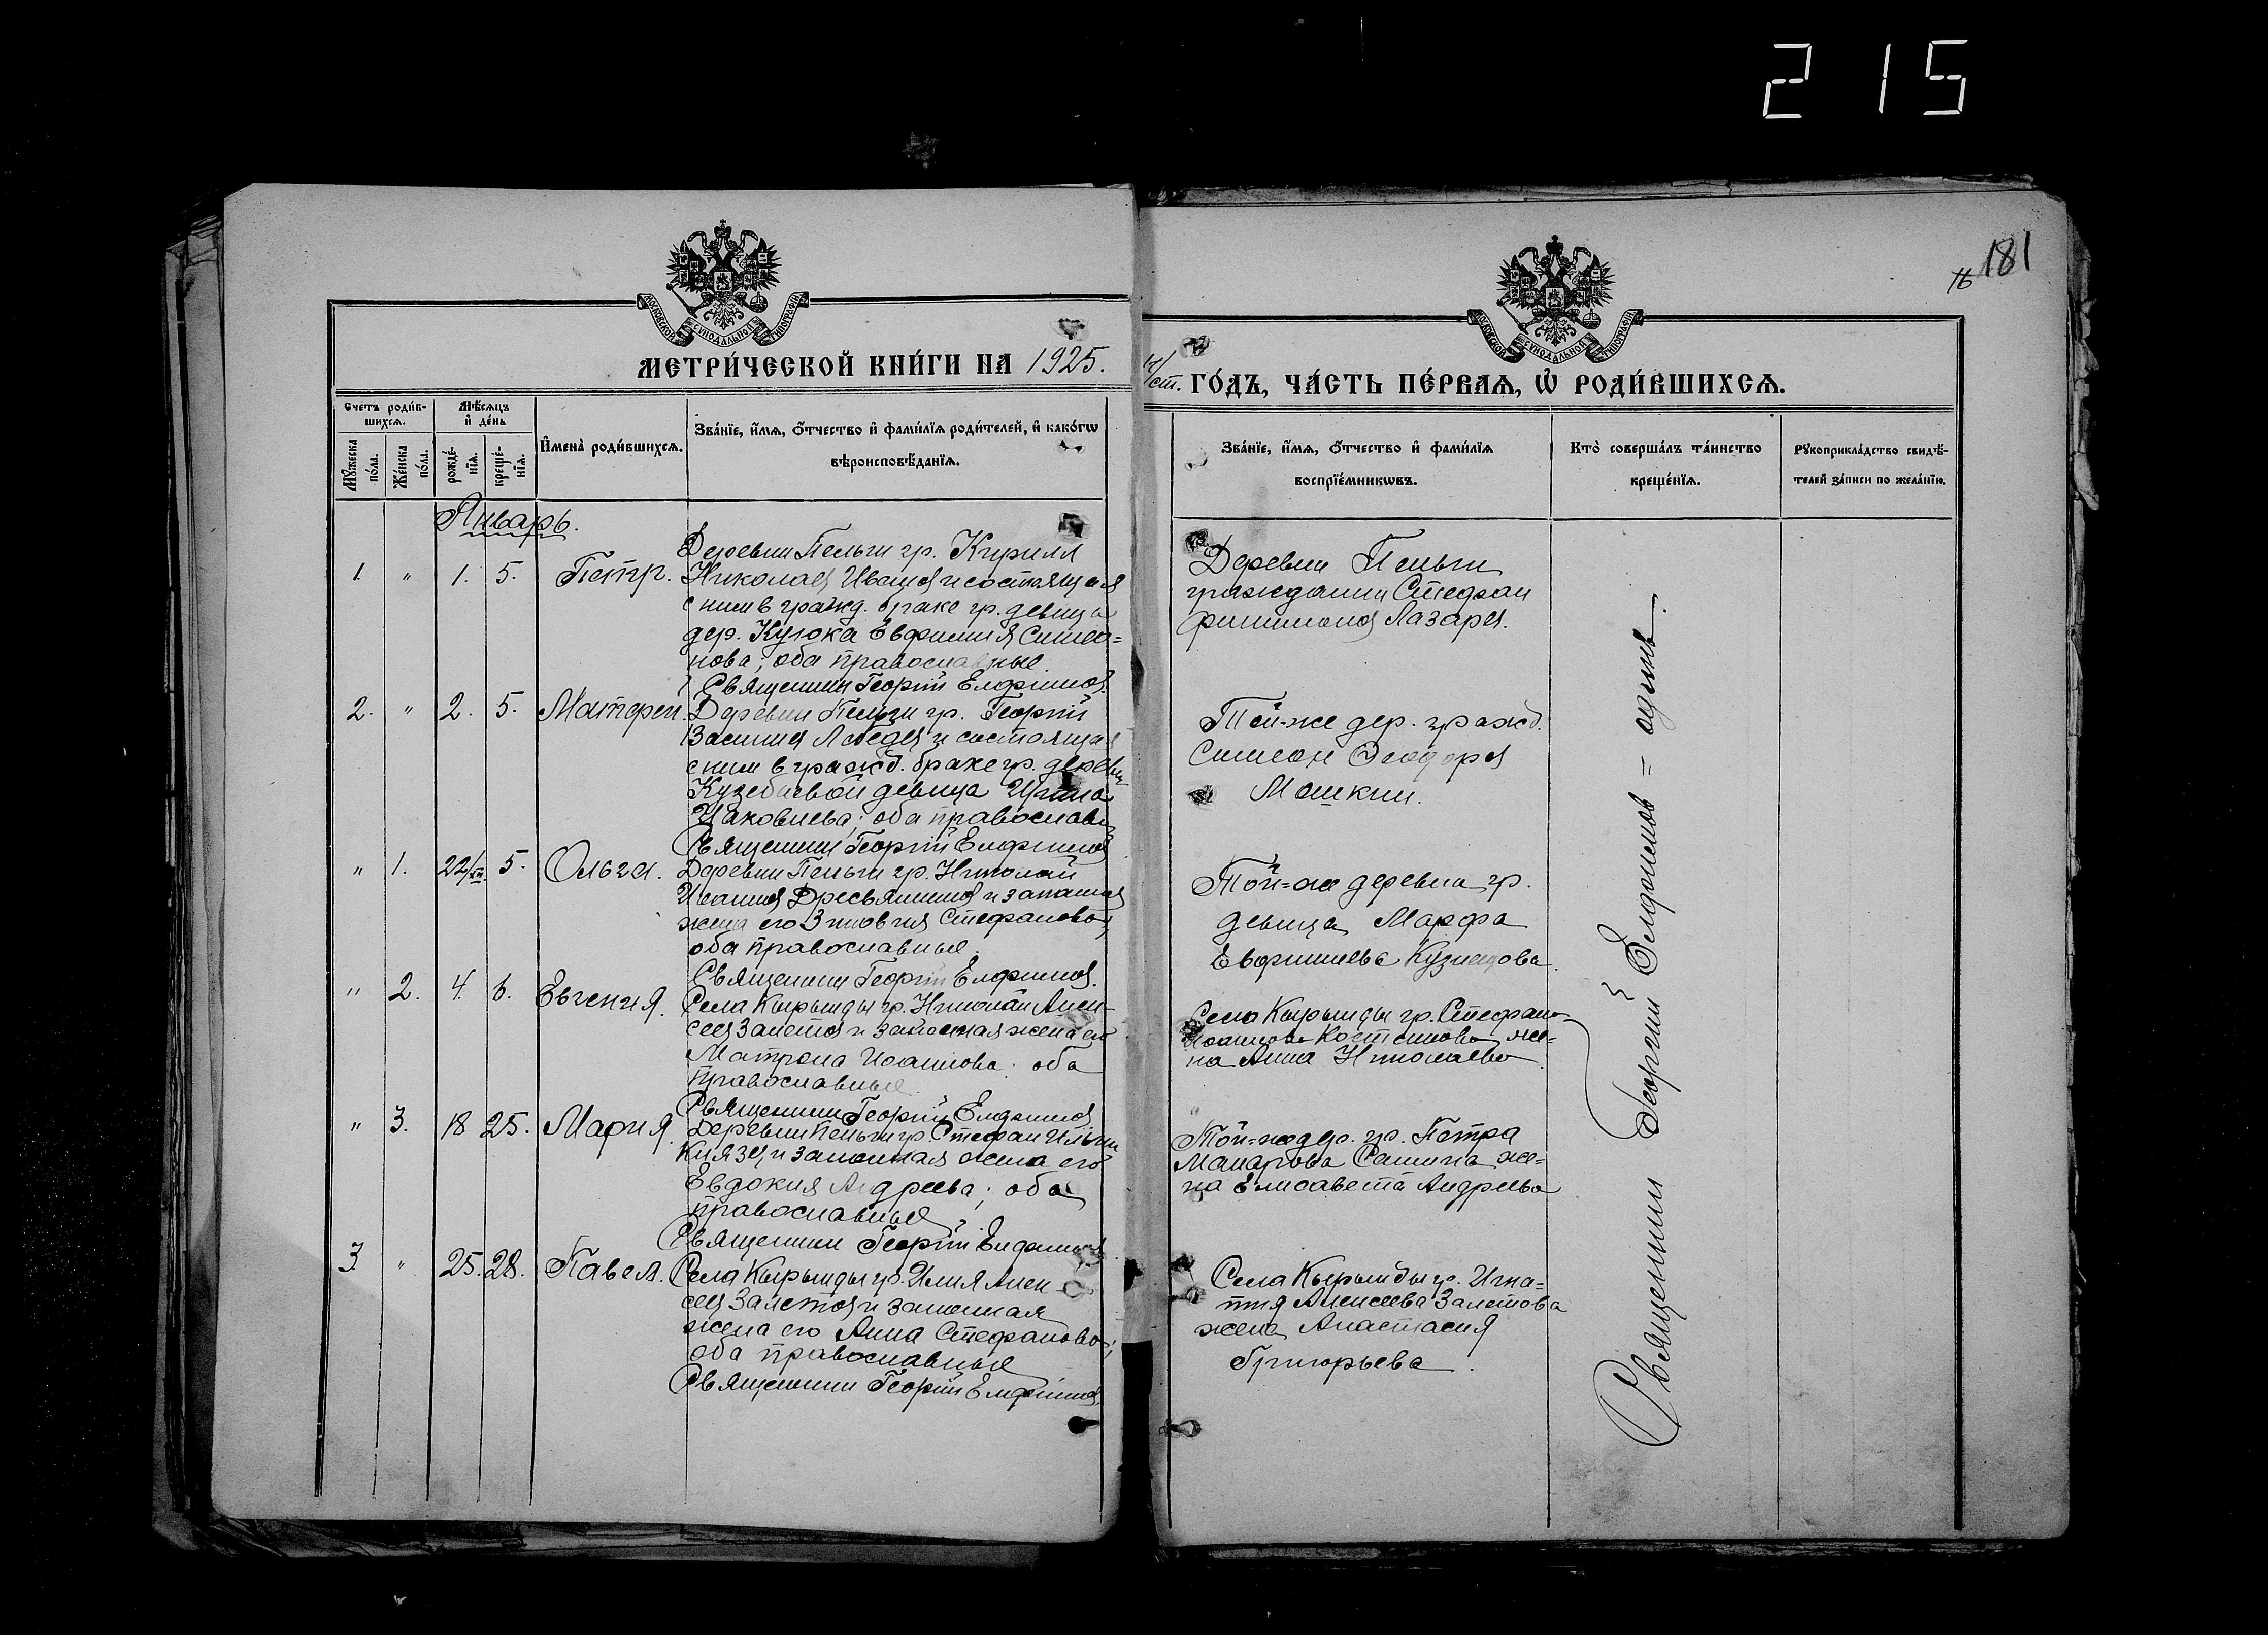 215
181
16
МОСКОВСКОЙ СѴНОДАЛЬНОЙ ТИПОГРАФІИ
МОСКОВСКОЙ СѴНОДАЛЬНОЙ ТИПОГРАФІИ
МЕТРИ́ЧЕСКОЙ КНИ́ГИ НА 1925.
ст. ГО́ДЪ, ЧА́СТЬ ПЕ́РВАѦ, Ѡ҆ РОДИ́ВШИХСѦ.
Счетъ роди́в-
шихсѧ.
Мѣ́сѧцъ
и҆ де́нь
Мꙋ́жеска
по́ла.
Же́нска
по́ла.
рожде́-
нїѧ.
креще́-
нїѧ.
И҆мена̀ роди́вшихсѧ.
Зва́нїе, и҆́мѧ, ѻ҆́тчество и҆ фами́лїѧ роди́телей, и҆ како́гѡ
вѣроисповѣ́данїѧ.
Зва́нїе, и҆́мѧ, ѻ҆́тчество и҆ фами́лїѧ
воспрїе́мникѡвъ.
Кто̀ соверша́лъ та́инство
креще́нїѧ.
Рꙋкоприкла́дство свидѣ́-
телей за́писи по жела́нїю.
Январь.
1. " 1. 5. Петр.
Деревни Пельги гр. Кирилл
Николаев Ивашев и состоящая
с ним в гражд. браке гр. девица
дер. Кузюка Евфимия Симео=
нова; оба православные.
Священник Георгий Елфимов.
Деревни Пельги
гражданин Стефан
Филимонов Лазарев.
2. " 2. 5. Матфей.
Деревни Пельги гр. Георгий
Васильев Лебедев и состоящая
с ним в гражд. браке гр. деревни
Кузебаевой девица
Иаковлева; оба православн
Священник Георгий Елфимов
Той-же дер. гражд.
Симеон Феодоров
Машкин.
" 1. 22/XII. 5. Ольга.
Деревни Пельги гр. Николай
Иоаннов Дресвянников и законная
жена его Зиновия Стефанова;
оба православные.
Священник Георгий Елфимов.
Той=же деревни гр.
девица Марфа
Евфимиева Кузнецова.
" 2. 4. 6. Евгения.
Села Кырынды гр. Николай Алек-
сеев Залетов и законная жена его
Матрона Иоаннова; оба
православные
Священник Георгий Елфимов
Села Кырынды гр. Стефана
Иоаннова Костенкова же=
на Анна Николаева
" 3. 18 25. Мария.
Деревни Пельги гр. Стефан Ильин
Князев и законная жена его
Евдокия Андреева; оба
православные
Священник Георгий Елфимов
Той=же дер. гр. Петра
Макарова Сашина же=
на Елисавета Андреева
3. " 25. 28. Павел.
Села Кырынды гр. Илия Алек
сеев Залетов и законная
жена его Анна Стефанова;
оба православные
Священник Георгий Елфимов.
Села Кырынды гр. Игна=
тия Алексеева Залетова
жена Анастасия
Григорьева.
Священник Георгий Елфимов = один.